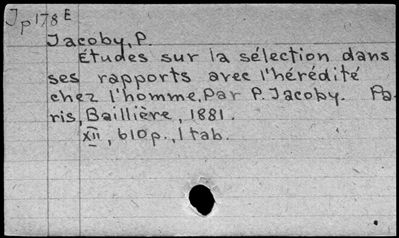 Jp178E
Jacoby, P.
Études sur la sélection dans
ses rapports avec l'hérédité
chez l'homme, Par P. Jacoby. Pa-
ris, Baillière, 1881.
XII, 610p., 1 tab.